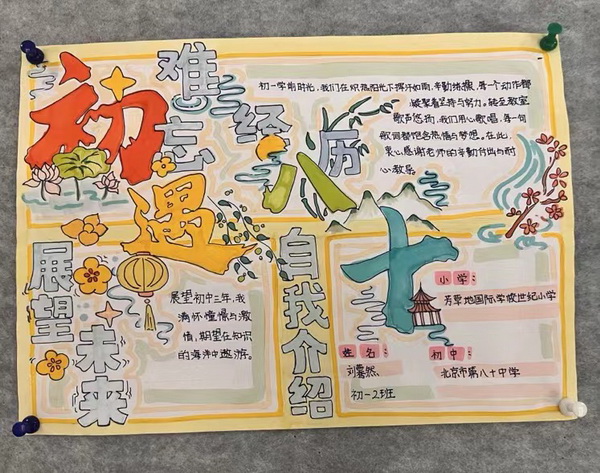 初遇八十
难忘经历
初一学前时光,我们在炽热阳光下挥汗如雨,辛勤练操,每一个动作都
凝聚着坚持与努力。转至教室
歌声悠扬,我们用心歌唱,每一句
歌词都饱含热情与梦想。在此,
衷心感谢老师的辛勤付出与耐
心教导。
展望未来
展望初中三年,我
满怀憧憬与激
情,期望在知识
的海洋中遨游。
自我介绍
小学:
芳草地国际学校世纪小学
姓名:
刘霁然
初中:
北京市第八十中学
初一2班